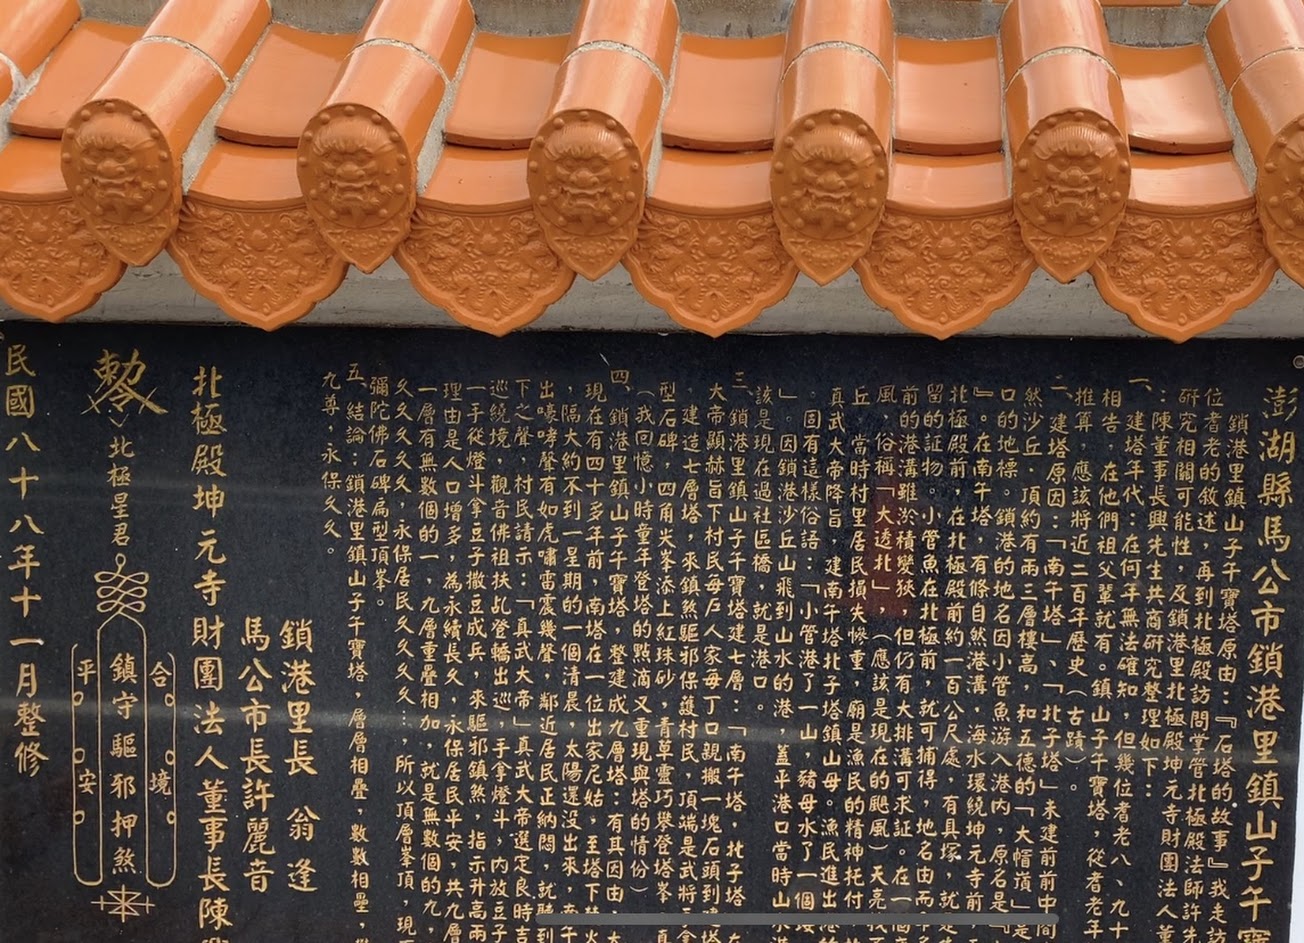 澎湖縣馬公市鎖港里鎮山子午寶
鎖港里鎮山子午寶塔原由：『石塔的故事』我走訪
位者老的敘述，再到北極殿訪問掌管北極殿法師許先
研究相關可能性，及鎖港里北極殿坤元寺財團法人董
：陳董事長興先生共商研究整理如下：
一、建塔年代：在何年無法確知，但幾位者老八、九十
相告，在他們祖父輩就有。鎮山子午寶塔，從者老年
推算，應該將近二百年歷史（古蹟）。
二、建塔原因：「南午塔」、「北子塔」未建前前中間
然沙丘，頂約有兩三層樓高，和五德的「大
口的地標。鎖港的地名因小管魚游入港內，原名是『
』。在南午塔，有條自然港溝，海水環繞坤元寺前，
北極殿前，在北極殿前約一百公尺處，有具塚，就是
留的証物。小管魚在北極前，就可捕得，地名由而
前的港溝雖淤積變狹，但仍有大排溝可求証。在一個
風，俗稱「大透北」，（應該是現在的颱風）天亮
丘，當時村里居民損失慘重，廟是漁民的精神托付，
真武大帝降旨，建南午塔北子塔鎮山母。漁民進出港
。固有這樣俗語：「小管港了一山，豬母水了一個
」。因鎖港沙丘山飛到山水的港，蓋平港口當時山水
該是現在過社區橋，就是港口。
三、鎖港里鎮山子午寶塔建七層：「南午塔，北子塔
大帝顯赫旨下村民每戶人家每丁口親搬一塊石頭到建塔
，建造七層塔，來鎮煞驅邪保護村民，頂端是武將
型石碑，四角尖峯添上紅珠砂，青草靈巧攀登塔峯
（我回憶小時童年登塔的點滴又重現與塔的情份）
四、鎖港里鎮山子午寶塔，整建成九層塔：有其因由，大
現在有四十多年前，南塔在一位出家尼姑，至塔下
，隔大約不到一星期的一個清晨，太陽還沒出來，南午
出嚎哮聲有如虎嘯雷震幾聲，鄰近居民正納悶，就聽到
下之聲，村民請示：「真武大帝」真武大帝選定良時吉
巡繞境，觀音佛祖扶乩登轎出巡，手拿燈斗，內放豆子
一手從燈斗拿豆子撒豆成兵，來驅邪鎮煞，指示升高兩
理由是人口增多，為永續長久，永保居民平安，共九層
一層有無數個的一，九層重疊相加，就是無數個的九，
久久久久久，永保居民久久久久久：，所以頂層峯頂，現
彌陀佛石碑扁型頂峯。
五、結論：鎖港里鎮山子午寶塔，層層相疊，數數相壘，
九尊，永保久久。
鎖港里長　翁　逢
馬公市長許麗音
北極殿坤元寺財團法人董事長陳
北極星君
合境
鎮守驅邪押煞
平安
民國八十八年十一月整修